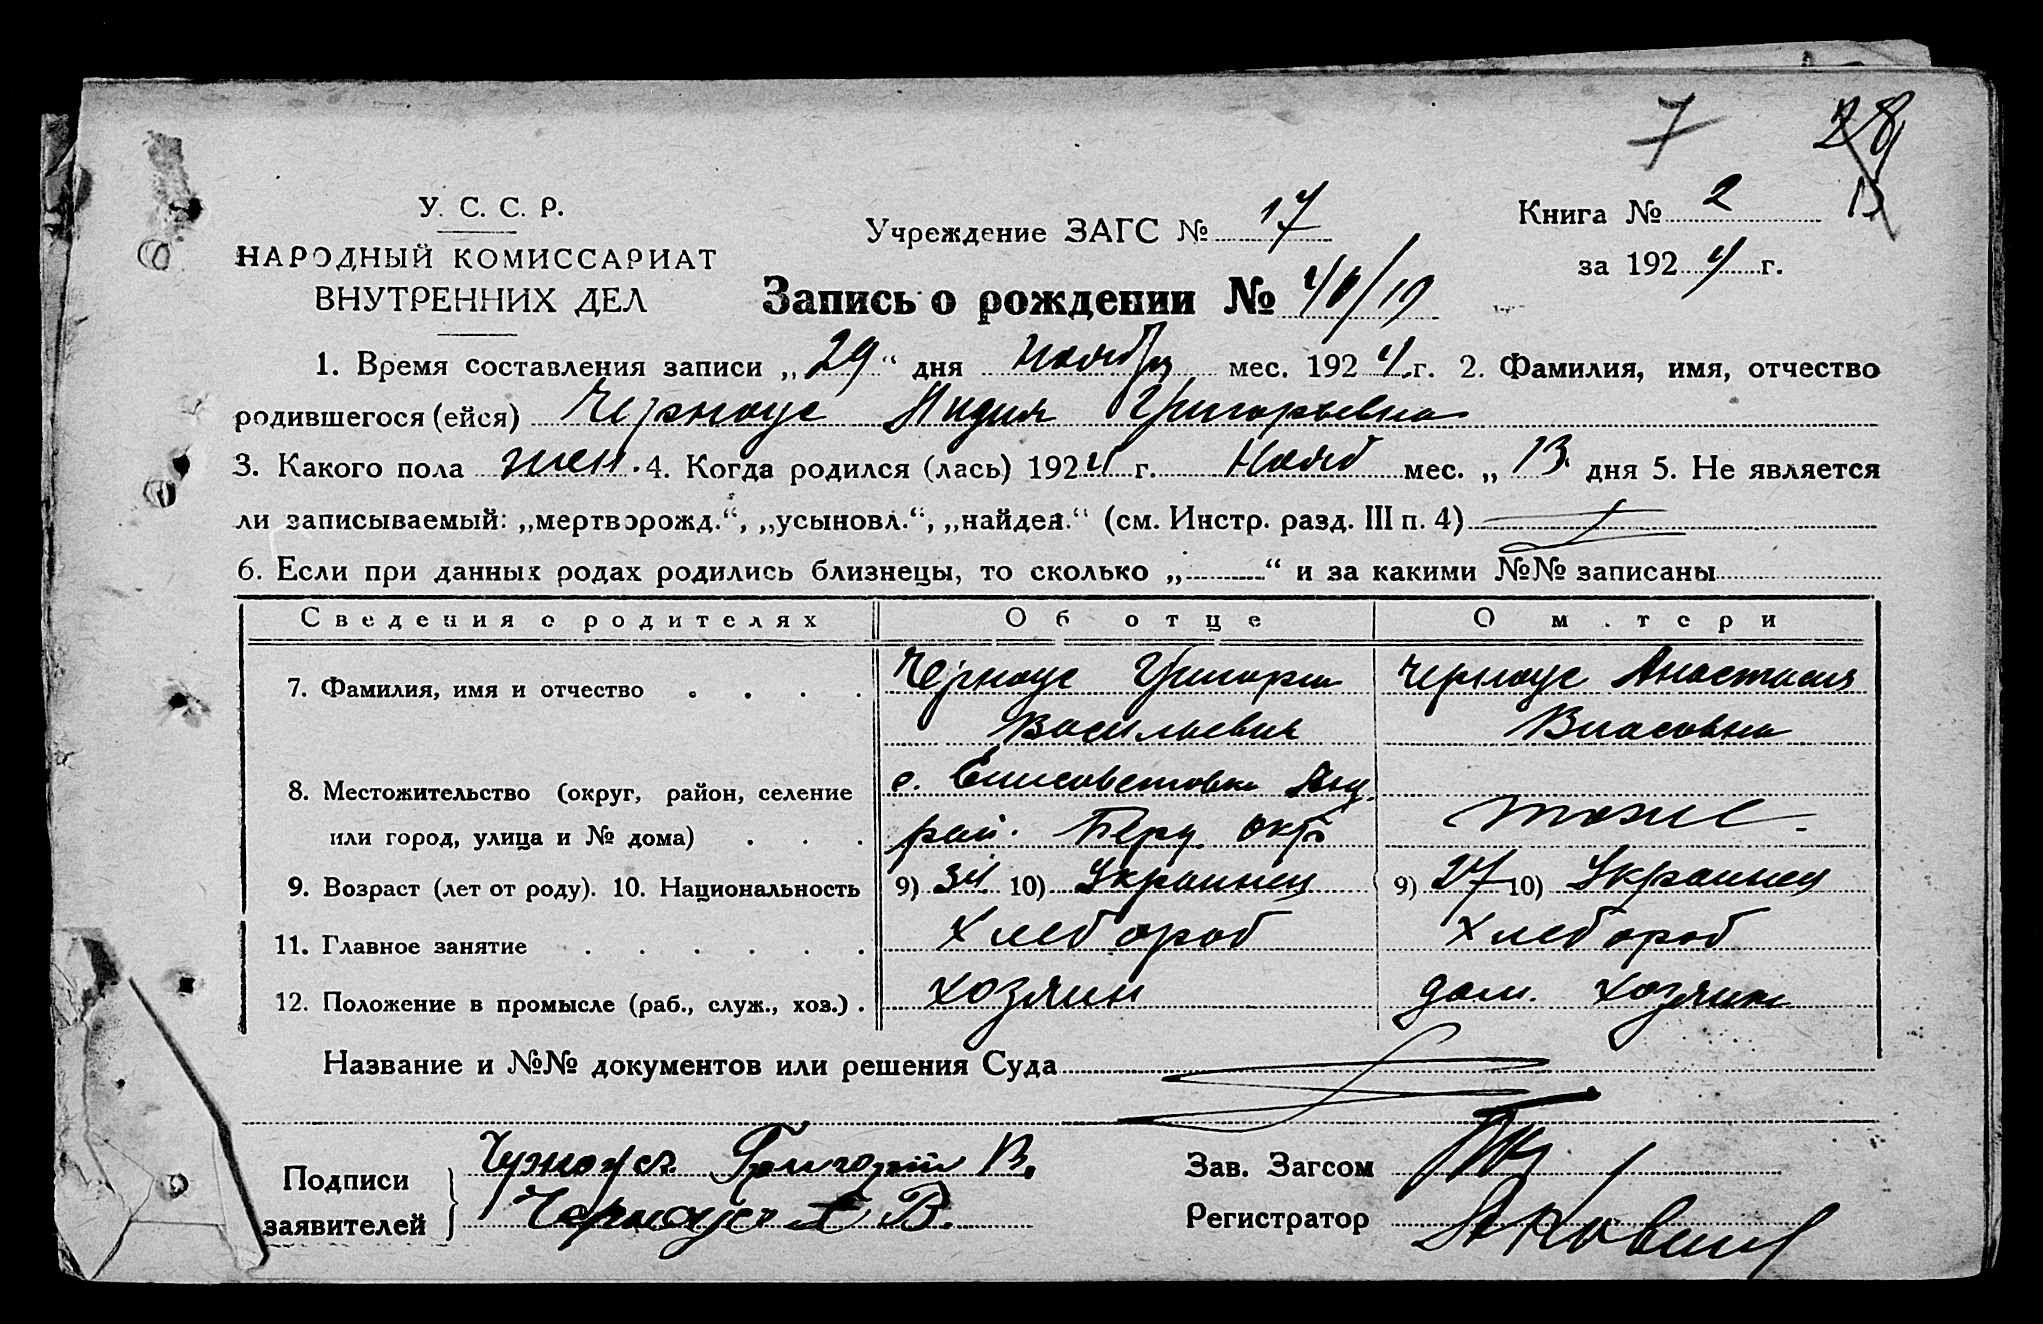 7 28
13
У. С. С. Р.
НАРОДНЫЙ КОМИССАРИАТ
ВНУТРЕННИХ ДЕЛ
Учреждение ЗАГС № 17
Книга № 2
за 1924 г.
Запись о рождении №
1. Время составления записи „29“ дня Ноября мес. 1924 г. 2. Фамилия, имя, отчество
родившегося (ейся) Черноус Лидия Григорьевна
3. Какого пола жен. 4. Когда родился (лась) 1924 г. Нояб мес. „13. дня 5. Не является
ли записываемый: „мертворожд.“, „усыновл.“, „найден.“ (см. Инстр. разд. III п. 4)
6. Если при данных родах родились близнецы, то сколько „ “ и за какими №№ записаны
Сведения о родителях Об отце О матери
7. Фамилия, имя и отчество Черноус Григорий Черноус Анастасия
Васильевич Власовна
8. Местожительство (округ, район, селение с. Елисаветовка
или город, улица и № дома) рай. Берд. окр тоже.
9. Возраст (лет от роду). 10. Национальность 9) 34 10) Украинец 9) 27 10) Украинец
11. Главное занятие Хлебороб Хлебороб
12. Положение в промысле (раб., служ., хоз.) хозяин дом. хозяик
Название и №№ документов или решения Суда
Подписи Григорий В.
заявителей Черноус А В.
Зав. Загсом
Регистратор